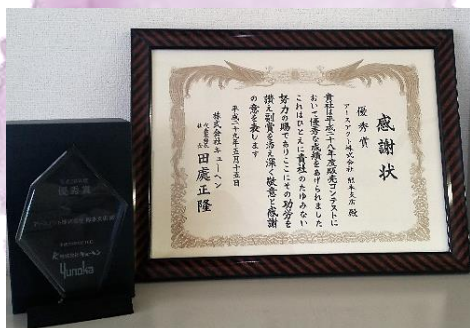 感謝状
優秀賞
アースアクト株式会社 熊本支店 殿
貴社は平成二十八年度販売コンテストに
おいて優秀な成績をあげられました
これはひとえに貴社のたゆみない
努力の賜でありここにその功労を
讃え副賞を添え深く敬意と感謝
の意を表します
平成二十九年五月十五日
株式会社キューヘン
代表取締役
社長
田處正隆
優秀賞
株式会社キューヘン
yunoka